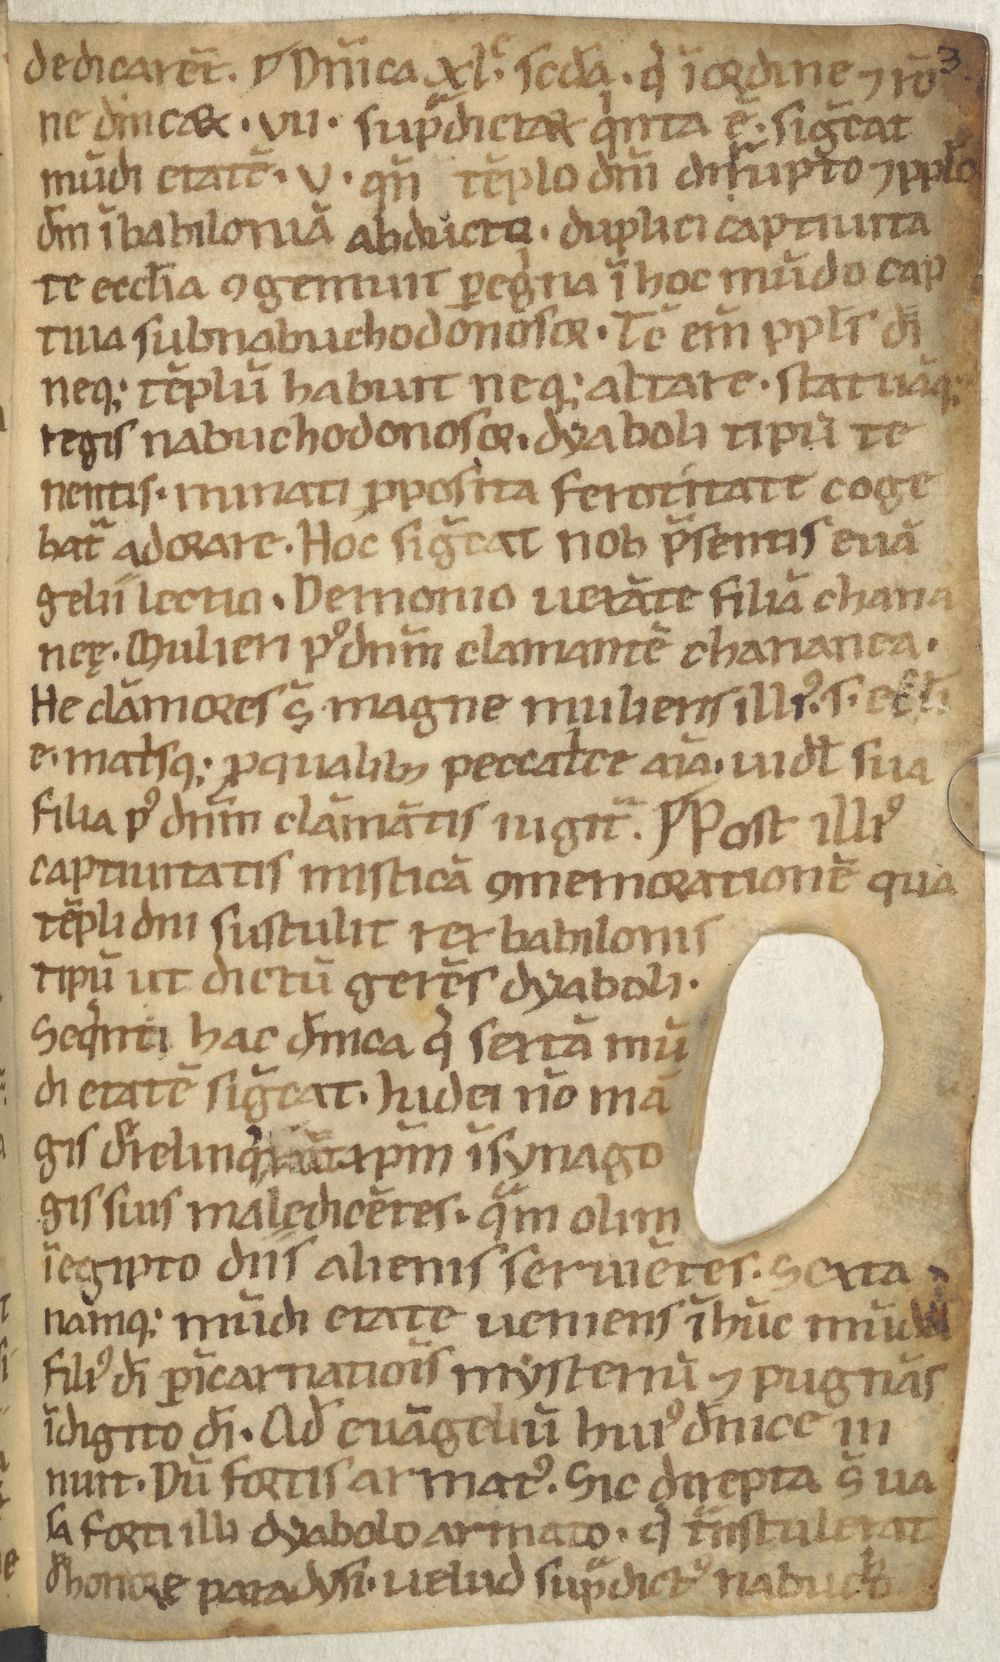 dedicarēt. ꝑ Dn̄ica xlᶜ. scd̄a. q̇ īordine ⁊ rō 3
ne dn̄icaꝝ. vii. sup̄dictaꝝ q̇nta ē. sigc̄at
mūdi etatē. v. qn̄ tēplo dn̄i dirupto ⁊ ppl̄o
dn̄i ībabiloniā abducto. duplici captiuita
te eccl̄ia ꝯgemuit ꝑegͥna ī hoc mūdo cap
tiua sub nabuchodonosor. Tc̄ em̄ ppl̄s dī
neq; tēplū habuit neq; altare. statuāq;
regis nabuchodonosor. dyaboli tipū te
nentis. minati ꝓposita ferocitate coge
bat᷑ adorare. Hoc sigc̄at nob̄ p̄sentis euā
gelii lectio. Demonio uexāte filiā chana
neę. Mulieri pꝰ dn̄m clamantē chananea.
He clāmores s̄ magne mulieris illiꝰ. s. eccl̄i
e. matrisq; ꝓ qualibꝫ peccatͥce aīa. uidl̄ sua
filia pꝰ dn̄m clāmātis iugit᷑. ꝑ Post illiꝰ
captiuitatis misticā ꝯmemorationē qua
tēpli dn̄i sustulit rex babilonis
tipū ut dictū gerēs dyaboli.
Seq̇nti hac dn̄ica q̄ sextā mū
di etatē sigc̄at. Iudei nō mā
gis īsynago
gis suis maledicētes. qͣm olim
īegipto diis alienis seruiētes. Sexta
namq; mūdi etate ueniens ī hūc mūdū
filiꝰ dī ꝑ īcarnatiōis mysteriū ⁊ pugnās
īdigito dī. Ad euāgeliū huiꝰ dn̄ice in
nuit. Dū fortis armatꝰ. Sic direpta s̄ ua
sa forti illi dyabolo armato. q̄ tͣnstulerat
d̄ honore paradysi. uelud sup̄dictꝰ nabucħo